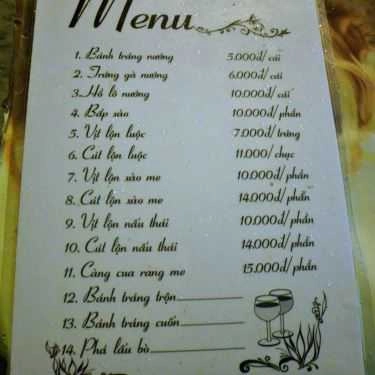 Menu
1. Bánh tráng nướng 5.000đ/ cái
2. Trứng gà nướng 6.000đ/ cái
3. Hồ lô nướng 10.000đ/ cái
4. Bắp xào 10.000đ/ phần
5. Vịt lộn luộc 7.000đ/ trứng
6. Cút lộn luộc 11.000/ chục
7. Vịt lộn xào me 10.000đ/ phần
8. Cút lộn xào me 14.000đ/ phần
9. Vịt lộn nấu thái 10.000đ/ phần
10. Cút lộn nấu thái 14.000đ/ phần
11. Càng cua rang me 15.000đ/ phần
12. Bánh tráng trộn
13. Bánh tráng cuốn
14. Phá lấu bò